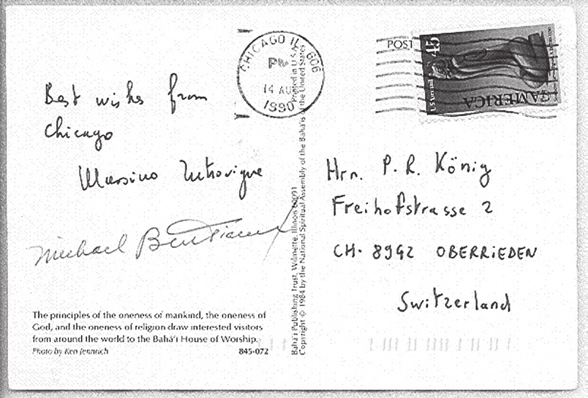 Best wishes from
Chicago
Massimo Introvigne
Michael
The principles of the oneness of mankind, the oneness of
God, and the oneness of religion draw interested visitors
from around the world to the Bahá'í House of Worship.
Photo by Ken Jennrich
845-072
Bahá'í Publishing Trust, Wilmette, Illinois 60091
Copyright © 1984 by the National Spiritual Assembly of the Bahá'ís of the United States
Printed in U.S.A.
CHICAGO IL 606
PM
14 AUG
1990
POST
45
AMERICA
Hrn. P. R. König
Freihofstrasse 2
CH-8942 OBERRIEDEN
Switzerland